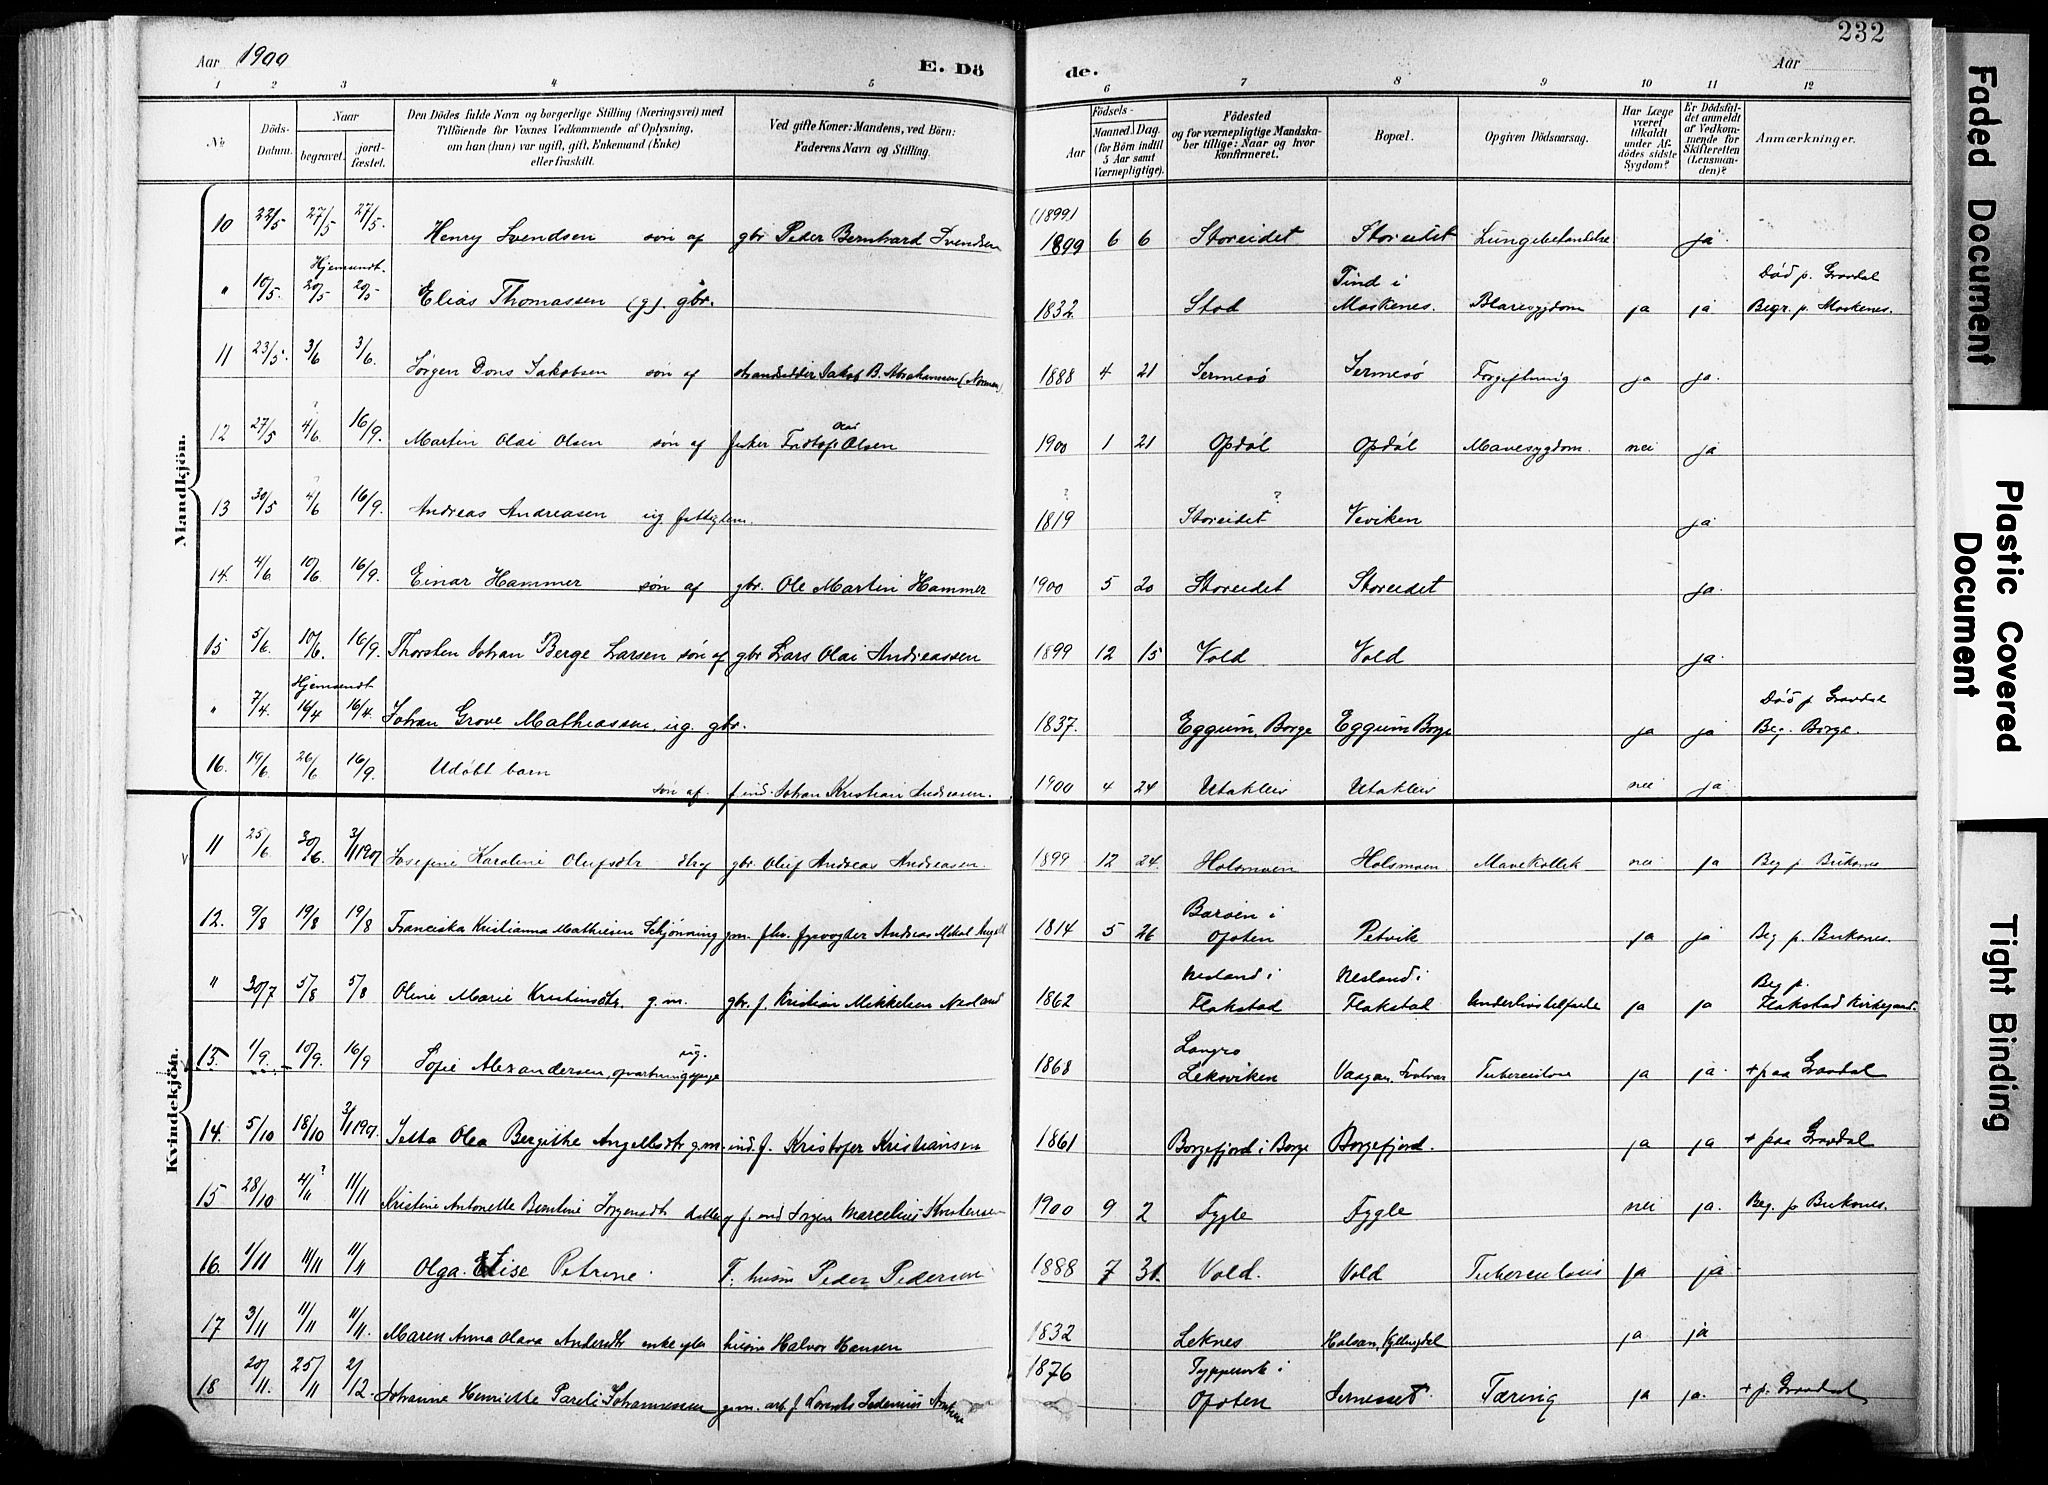 232
Aar 1900
E. Dö
de.
Aar
1 2 3 4 5 6 7 8 9 10 11 12
No
Döds-Datum.
Naar
begravet.
jord-fæstet.
Den Dödes fulde Navn og borgerlige Stilling (Næringsvei) med
Tilföiende for Voxnes Vedkommende af Oplysning,
om han (hun) var ugift, gift, Enkemand (Enke)
eller fraskilt.
Ved gifte Koner: Mandens, ved Börn:
Faderens Navn og Stilling.
Födsels-
Aar
Maaned. Dag.
(for Börn indtil
5 Aar samt
Værnepligtige).
Födested
og for værnepligtige Mandska-
ber tillige: Naar og hvor
konfirmeret.
Bopæl.
Opgiven Dödsaarsag.
Har Læge
været
tilkaldt
under Af-
dödes sidste
Sygdom?
Er Dödsfal-
det anmeldt
af Vedkom-
mende for
Skifteretten
(Lensman-
den)?
Anmærkninger.
Mandkjön.
(1899)
10 22/5 27/5 27/5. Henry Svendsen søn af gbr Peder Bernhard Svendsen 1899 6 6 Storeidet Storeidet Lungebetændelse ja
Hjemsendt. Tind i Død p. Gravdal
" 10/5. 20/5 20/5 Elias Thomassen (g). gbr. 1832 Stad Moskenes. Blæresygdom ja ja Begr. p. Moskenes.
11 23/5. 3/6 3/6. Jørgen Dons Jakobsen søn af strandsidder Jakob B. Abrahamsen 1888 4 21 Sermesø Sermesø Forgiftning ja ja.
12 27/5 ? 4/6. 16/9. Martin Olai Olsen søn af fisker Fridtjof Olai Olsen 1900 1 21 Opdøl Opdøl Mavesygdom. nei ja
13 30/5 ? 4/6 16/9. Andreas Andreasen ug fattiglem ? 1819 Storeidet ? Veviken ja
14. 4/6. 10/6. 16/9. Einar Hammer søn af gbr. Ole Martin Hammer 1900 5 20 Storeidet Storeidet ja.
15 5/6. 10/6. 16/9. Thorsten Johan Berge Larsen søn af gbr Lars Olai Andreassen 1899 12 15 Vold Vold ja.
Hjemsendt Død p Gravdal
" 7/4. 16/4 16/4. Johan Grove Mathiassen, ug. gbr. 1837. Eggum, Borge Eggum Borge ja ja Beg. Borge.
16. 19/6. 26/6 16/9. Udøbt barn
søn af f. ind. Johan Kristian Andreasen. 1900 4 24 Utakleiv Utakleiv nei ja
Kvindekjön.
11 25/6 30/6. 3/1 1901 Josefine Karoline Olufsdtr dtr af gbr Oluf Andreas Andreasen. 1899 12 24. Holsmoen Holsmoen Mavekollik nei ja Beg p Buksnes
Barøen i
12. 9/8 19/8 19/8 Franciska Kristianna Mathiesen Schjønning gm. fhv. fyrvogter Andreas Mikal 1814 5 26 Ofoten Petvik ja ja Beg p. Buksnes.
Nesland i Nesland i Beg p.
" 30/7 5/8 5/8 Oline Marie Kristinsdtr. g.m. gbr. f. Kristian Mikkelsen Nesland 1862 Flakstad Flakstad Underlivstilfælde ja ja Flakstad Kirkegaard.
13. 1/9. 10/9. 16/9 Sofie Alexandersen, opvartningspige ug. 1868 Leksviken Vaagan, Svolvær Tuberculose ja ja. + paa Gravdal
14. 5/10 18/10 3/1 1901 Jetta Olea Bergithe Angellsdtr g.m. ind. f. Kristofer Kristiansen 1861 Borgefjord i Borge Borgefjord. ja ja + paa Gravdal
15 28/10 4/11 ? 11/11 Kristine Antonette Berntine Jørgensdtr datter af f. ind Jørgen Marcelius Kristensen 1900 9 2 Fygle Fygle nei ja. Beg. p Buksnes.
16. 1/11 11/11 11/11 Olga Elise Petrine. F. husm Peder Pedersen 1888 7 31. Vold. Vold Tuberculosis ja ja
17 3/11 11/11 11/11. Maren Anna Olava Andersdtr enke efter husm Halvor Hansen 1832 Leknes ja ja
18 20/11. 25/11 2/12. Johanne Henriette Pareli Johannessen g.m. arb. f 1876 Ofoten Sernesset Tæring ja ja. + p. Gravdal
Faded Document
Plastic Covered
Document
Tight Binding